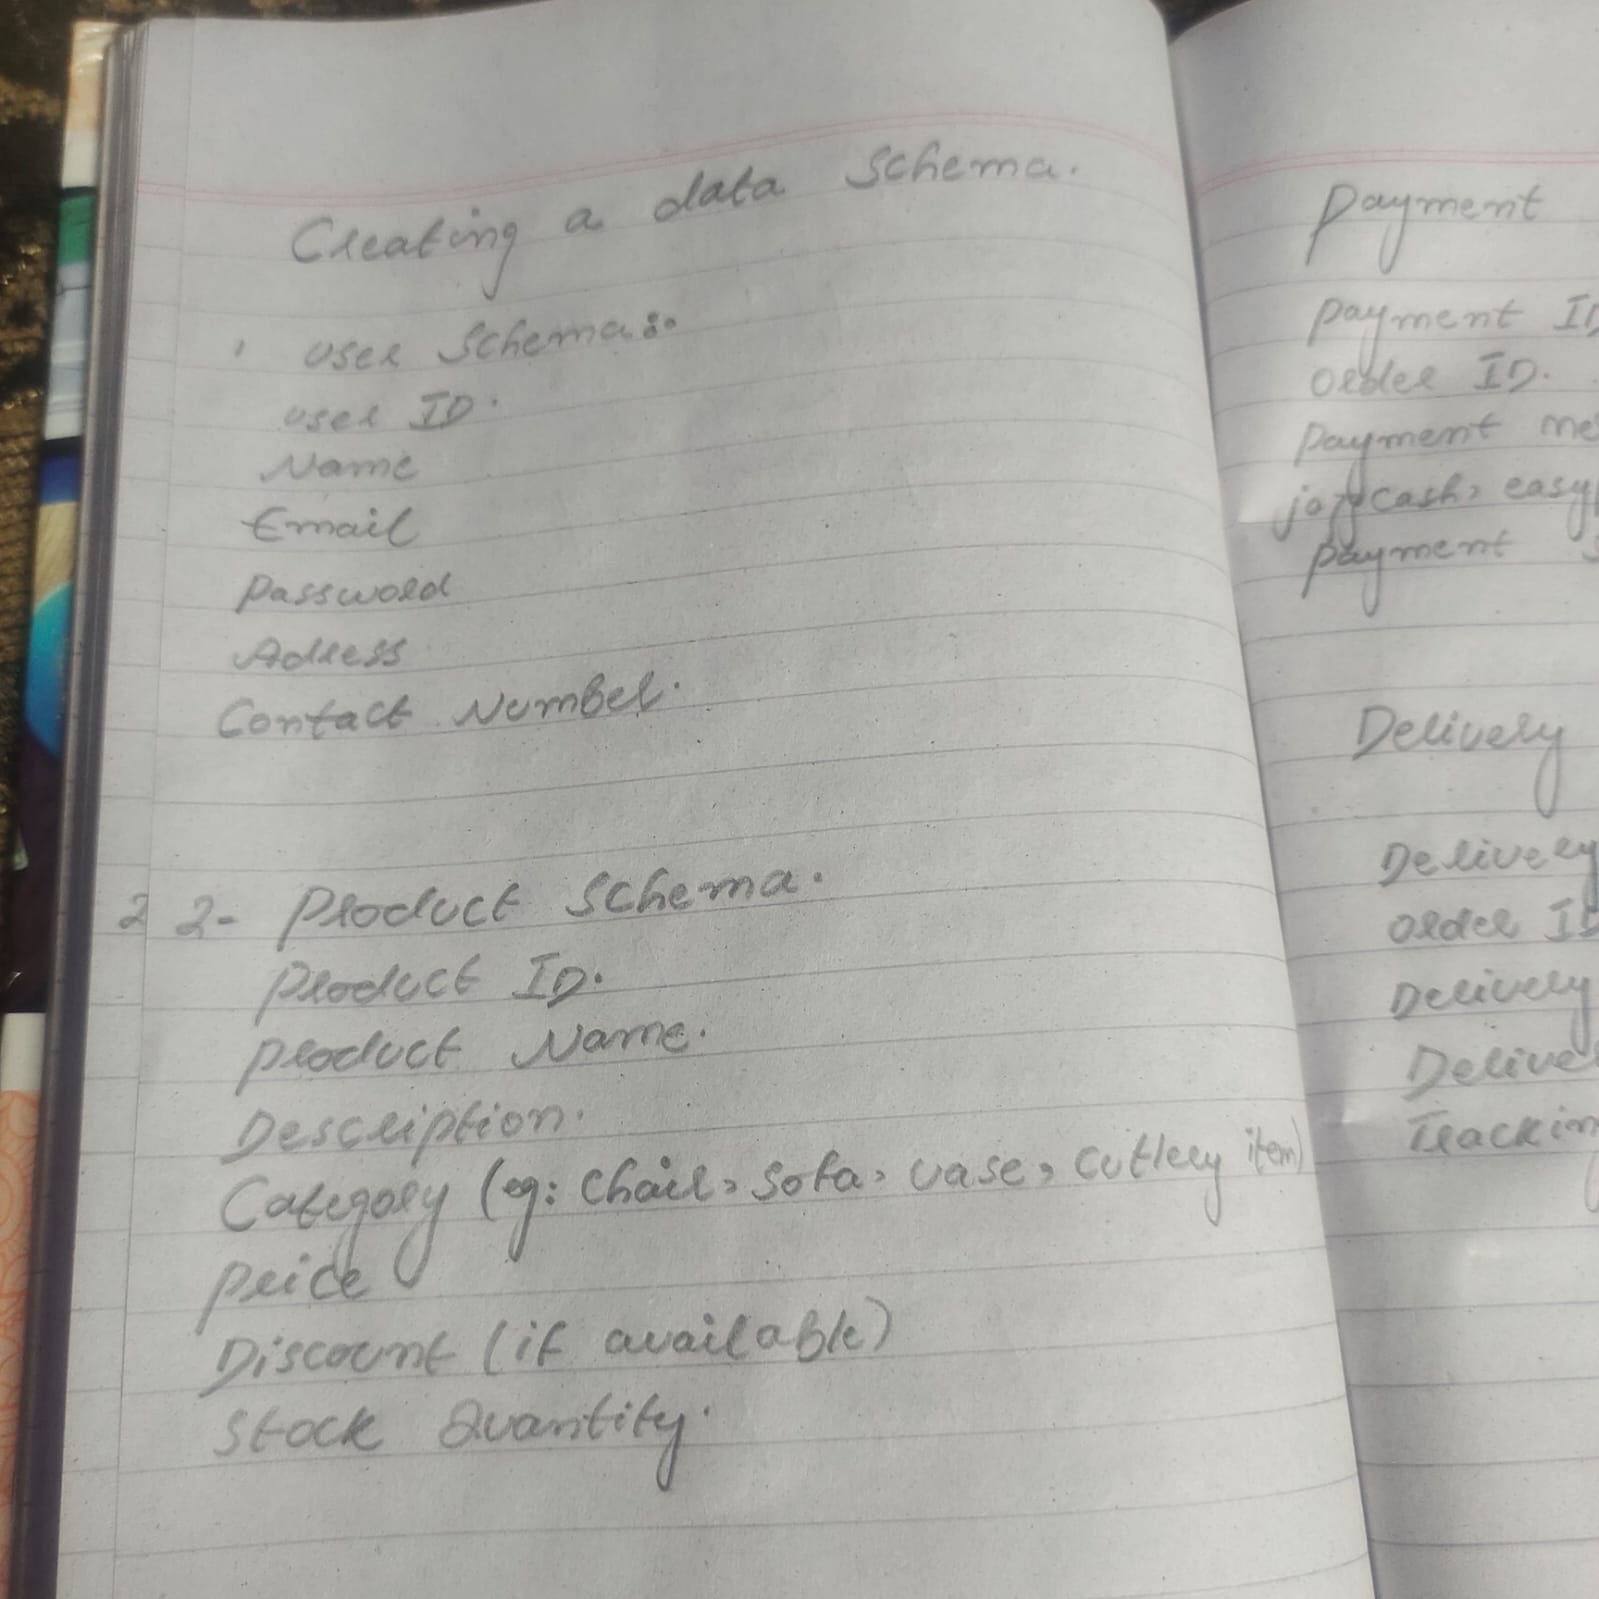 Creating a data Schema.
User Schema:
User ID.
Name
Email
Password
Adress
Contact Number.
2 2- Product Schema.
Product ID.
Product Name.
Description.
Category (eg: Chair, Sofa, vase, Cutlery item)
Price
Discount (if available)
Stock Quantity.
Payment
Payment ID
Order ID.
Payment me
jazzcash, easyp
Payment S
Delivery
Delivery
Order ID
Delivery
Deliver
Tracking